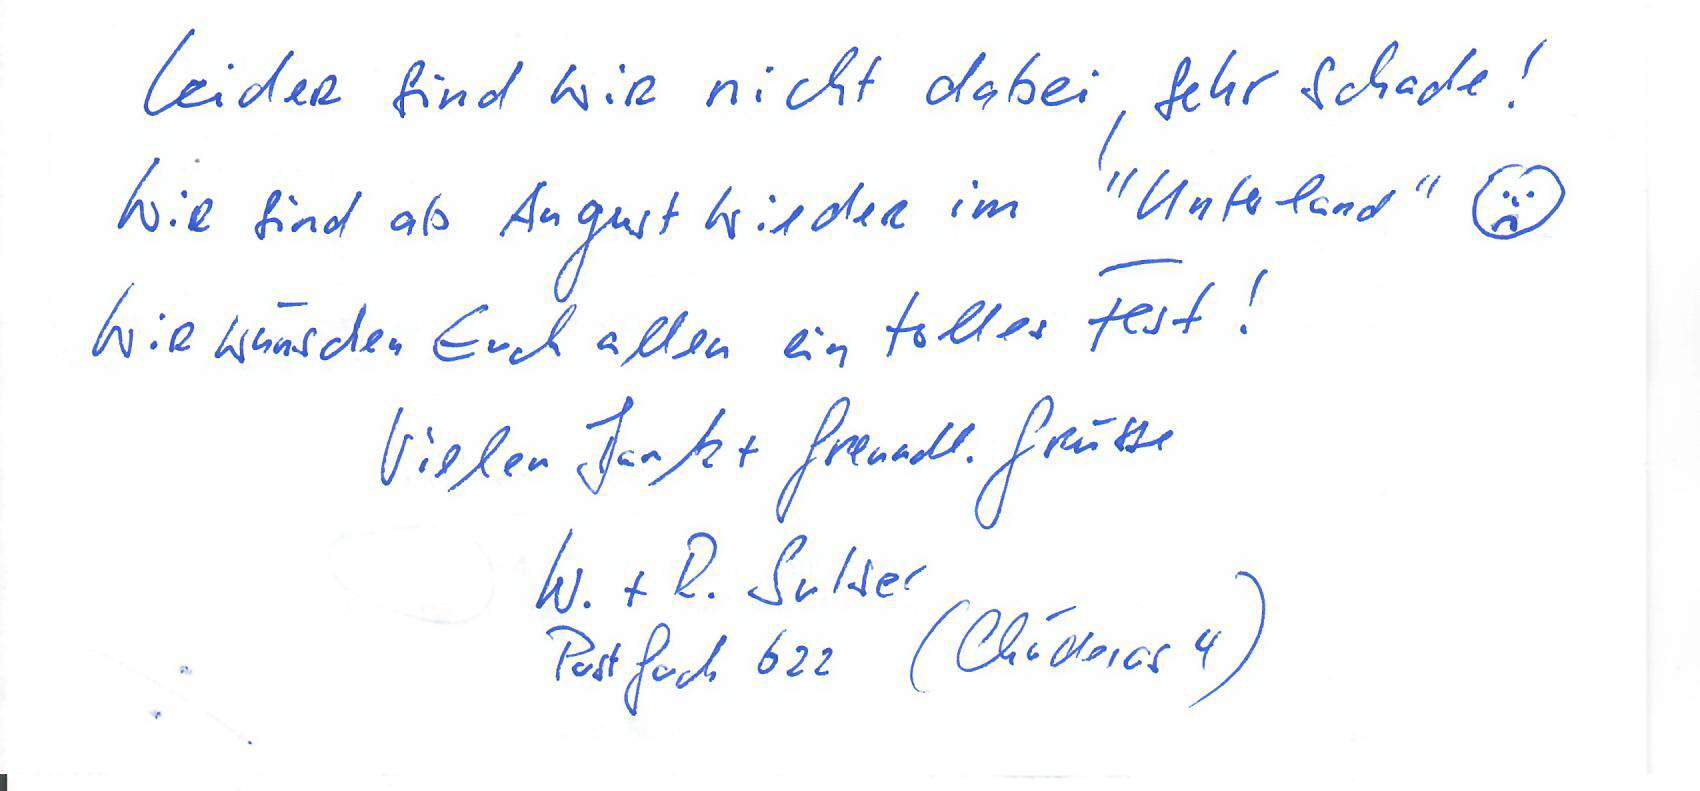 Leider sind wir nicht dabei, sehr schade!
Wir sind ab August wieder im "Unterland"
Wir wünschen Euch allen ein tolles Fest!
Vielen Dank + freundl. Grüsse
W. + R. Sulser
Postfach 622 (Chüderas 4)